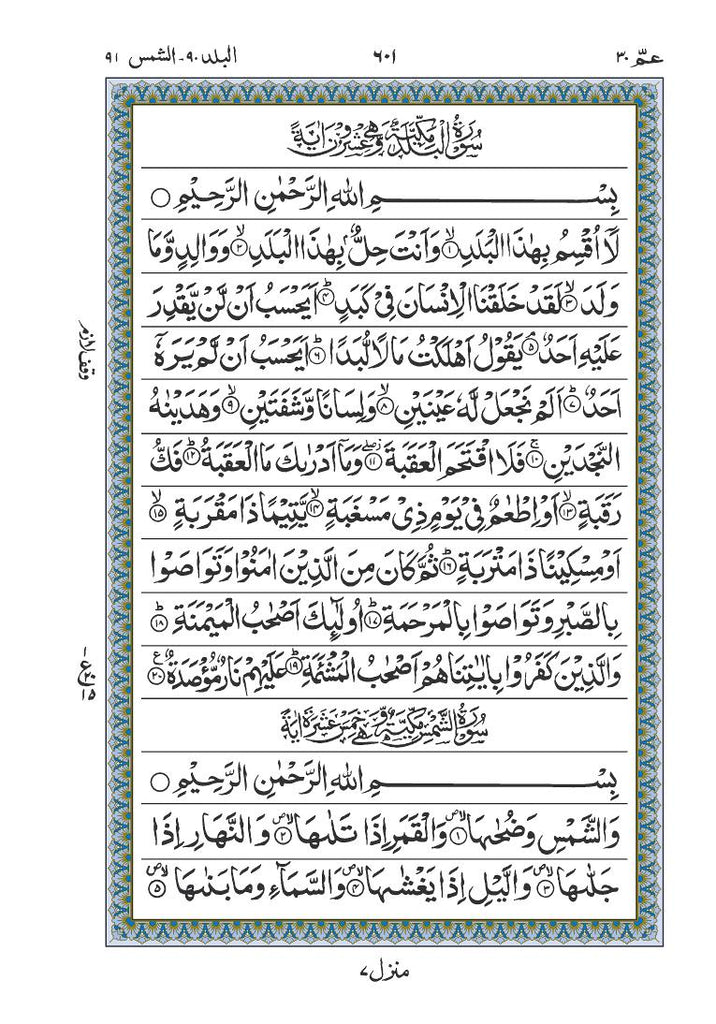 عمّ ٣٠ ٦٠١ البلد ٩٠ - الشمس ٩١
سُوۡرَةُ الۡبَلَدِ مَكِّيَّةٌ وَّهِيَ عِشۡرُوۡنَ اٰيَةً
بِسۡمِ اللّٰهِ الرَّحۡمٰنِ الرَّحِيۡمِ ○
لَاۤ اُقۡسِمُ بِهٰذَا الۡبَلَدِ ۙ‏﴿۱﴾ وَاَنۡتَ حِلٌّۢ بِهٰذَا الۡبَلَدِ ۙ‏﴿۲﴾ وَوَالِدٍ وَّمَا
وَلَدَ ۙ‏﴿۳﴾ لَقَدۡ خَلَقۡنَا الۡاِنۡسَانَ فِىۡ كَبَدٍ ؕ‏﴿۴﴾ اَيَحۡسَبُ اَنۡ لَّنۡ يَّقۡدِرَ
عَلَيۡهِ اَحَدٌ‌ ۘ‏﴿۵﴾ يَقُوۡلُ اَهۡلَكۡتُ مَالًا لُّبَدًا ؕ‏﴿۶﴾ اَيَحۡسَبُ اَنۡ لَّمۡ يَرَهٗۤ
اَحَدٌ ؕ‏﴿۷﴾ اَلَمۡ نَجۡعَلۡ لَّهٗ عَيۡنَيۡنِ ۙ‏﴿۸﴾ وَلِسَانًا وَّشَفَتَيۡنِ ۙ‏﴿۹﴾ وَهَدَيۡنٰهُ
النَّجۡدَيۡنِ‌ ۚ‏﴿۱۰﴾ فَلَا اقۡتَحَمَ الۡعَقَبَةَ ۖ‏﴿۱۱﴾ وَمَاۤ اَدۡرٰٮكَ مَا الۡعَقَبَةُ ؕ‏﴿۱۲﴾ فَكُّ
رَقَبَةٍ ۙ‏﴿۱۳﴾ اَوۡ اِطۡعٰمٌ فِىۡ يَوۡمٍ ذِىۡ مَسۡغَبَةٍ ۙ‏﴿۱۴﴾ يَّتِيۡمًا ذَا مَقۡرَبَةٍ ۙ‏﴿۱۵﴾
اَوۡ مِسۡكِيۡنًا ذَا مَتۡرَبَةٍ ؕ‏﴿۱۶﴾ ثُمَّ كَانَ مِنَ الَّذِيۡنَ اٰمَنُوۡا وَتَوَاصَوۡا
بِالصَّبۡرِ وَتَوَاصَوۡا بِالۡمَرۡحَمَةِ ؕ‏﴿۱۷﴾ اُولٰٓٮِٕكَ اَصۡحٰبُ الۡمَيۡمَنَةِ ؕ‏﴿۱۸﴾
وَالَّذِيۡنَ كَفَرُوۡا بِاٰيٰتِنَا هُمۡ اَصۡحٰبُ الۡمَشۡـَٔـمَةِ ؕ‏﴿۱۹﴾ عَلَيۡهِمۡ نَارٌ مُّؤۡصَدَةٌ ‏﴿۲۰﴾
سُوۡرَةُ الشَّمۡسِ مَكِّيَّةٌ وَّهِيَ خَمۡسَ عَشَرَةَ اٰيَةً
بِسۡمِ اللّٰهِ الرَّحۡمٰنِ الرَّحِيۡمِ ○
وَالشَّمۡسِ وَضُحٰٮهَا ۙ‏﴿۱﴾ وَالۡقَمَرِ اِذَا تَلٰٮهَا ۙ‏﴿۲﴾ وَالنَّهَارِ اِذَا
جَلّٰٮهَا ۙ‏﴿۳﴾ وَالَّيۡلِ اِذَا يَغۡشٰٮهَا ۙ‏﴿۴﴾ وَالسَّمَآءِ وَمَا بَنٰٮهَا ۙ‏﴿۵﴾
وقف لازم
ع ١٥
منزل ٧